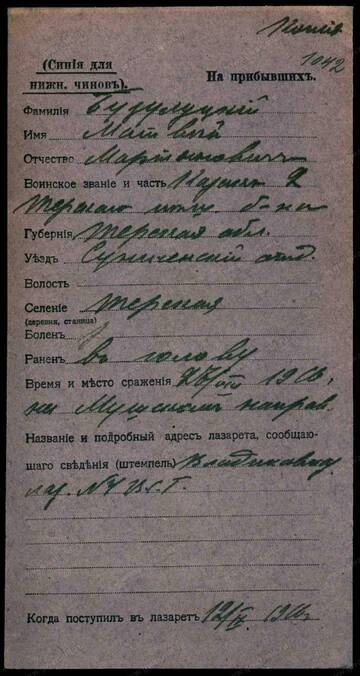 1042
(Синія для
нижн. чиновъ).
На прибывшихъ.
Фамилія Будулуцкій
Имя Матвѣй
Отчество Мартыновичъ
Воинское званіе и часть Казакъ 2
Терскаго б-на
Губернія Терская обл.
Уѣздъ Сунженскій отд.
Волость
Селеніе Терская
(деревня, станица)
Боленъ
Раненъ въ голову
Время и мѣсто сраженія 1916 г.
на Мушскомъ направ.
Названіе и подробный адресъ лазарета, сообщаю-
щаго свѣдѣнія (штемпель) Владикавказ.
№ 1 В.С.Г.
Когда поступилъ въ лазаретъ 12/IX 1916 г.